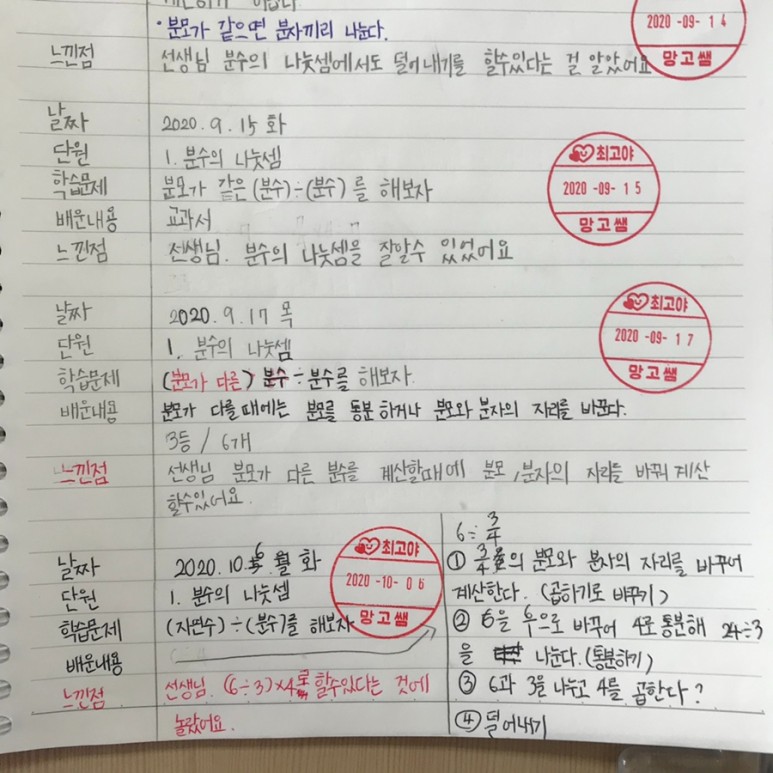 · 분모가 같으면 분자끼리 나눈다.
2020 -09- 14
망고쌤
느낀점 선생님 분수의 나눗셈에서도 덜어내기를 할수있다는 걸 알았어요
날짜 2020. 9. 15 화
단원 1. 분수의 나눗셈
최고야
학습문제 분모가 같은 (분수)÷(분수) 를 해보자
2020 -09- 15
배운내용 교과서
망고쌤
느낀점 선생님. 분수의 나눗셈을 잘알수 있었어요
날짜 2020. 9. 17 목
최고야
단원 1. 분수의 나눗셈
2020 -09- 17
학습문제 (분모가 다른) 분수÷분수를 해보자.
망고쌤
배운내용 분모가 다를때에는 분모를 통분 하거나 분모와 분자의 자리를 바꾼다.
3등 / 6개
느낀점 선생님 분모가 다른 분수를 계산할때에 분모, 분자의 자리를 바꿔 계산
할수있어요.
날짜 2020. 10. 6 화
최고야
단원 1. 분수의 나눗셈
2020 -10- 06
학습문제 (자연수)÷(분수)를 해보자
망고쌤
배운내용
느낀점 선생님. (6÷3)×4로 할수있다는 것에
놀랐어요.
6÷3/4
① 3/4의 분모와 분자의 자리를 바꾸어
계산한다. (곱하기로 바꾸기)
② 6을 6/1으로 바꾸어 4로 통분해 24÷3
을 나눈다. (통분하기)
③ 6과 3을 나누고 4를 곱한다?
④ 덜어내기